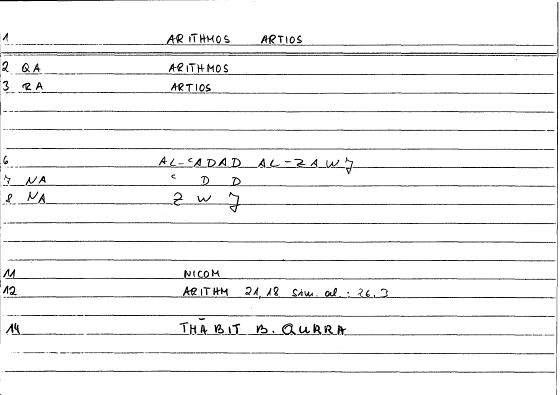 1 ARITHMOS ARTIOS
2 QA ARITHMOS
3 RA ARTIOS
6 AL-ʿADAD AL-ZAWJ
7 NA ʿ D D
8 NA Z W J
11 NICOM
12 ARITHM 21,18 Sim. al.: 26,3
14 THĀBIT B. QURRA